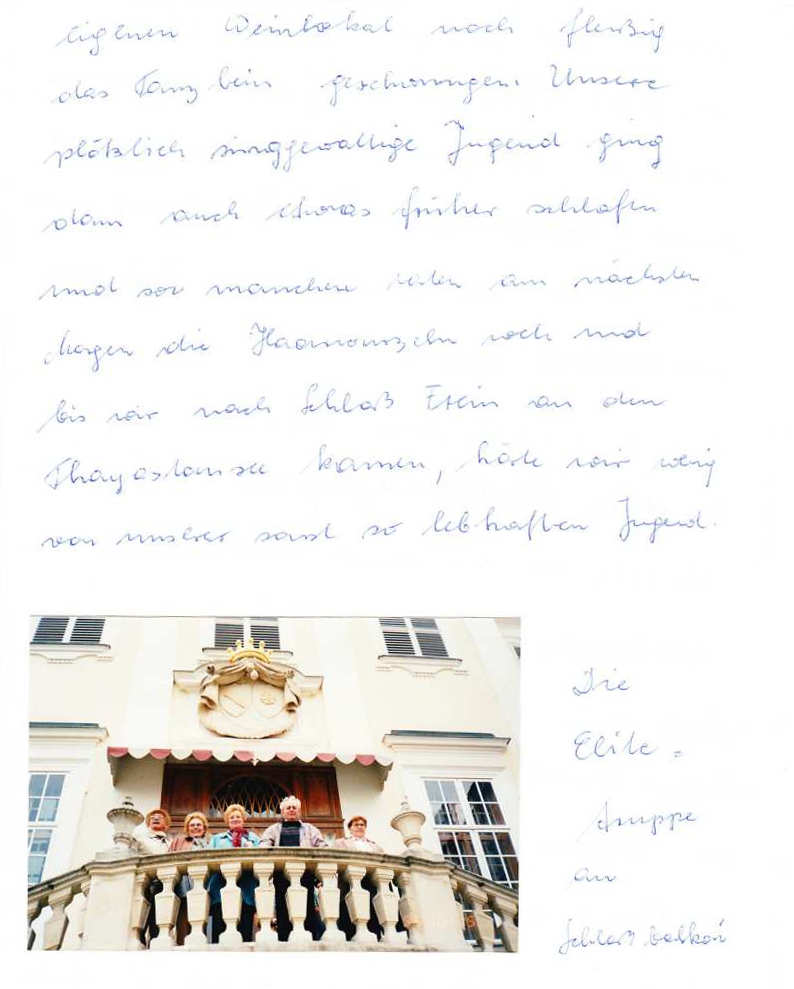 eigenen Weinlokal noch fleißig
das Tanzbein geschwungen. Unsere
plötzlich singgewaltige Jugend ging
dann auch etwas früher schlafen
und so manchem taten am nächsten
Morgen die Haarwurzeln weh und
bis wir nach Schloß am den
Thayastausee kamen, hörte wir wenig
von unserer sonst so lebhaften Jugend.
Die
Elite =
truppe
am
Schloßbalkon